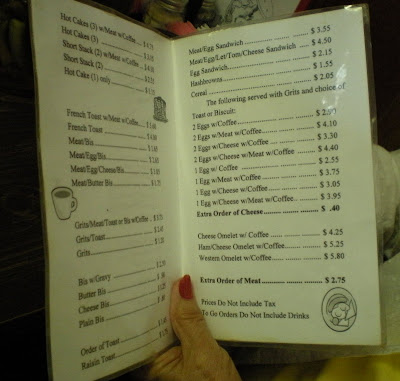 Hot Cakes (3) w/Meat w/Coffee
Hot Cakes (3)
Short Stack (2) w/Meat w/Coffee
Short Stack (2)
Hot Cake (1) only
French Toast w/Meat w/Coffee
French Toast
Meat/Bis
Meat/Egg/Bis
Meat/Egg/Cheese/Bis
Meat/Butter Bis
Grits/Meat/Toast or Bis w/Coffee
Grits/Toast
Grits
Bis w/Gravy
Butter Bis
Cheese Bis
Plain Bis
Order of Toast
Raisin Toast
Meat/Egg Sandwich $ 3.55
Meat/Egg/Let/Tom/Cheese Sandwich $ 4.50
Egg Sandwich $ 2.15
Hashbrowns $ 1.55
Cereal $ 2.05
The following served with Grits and choice of
Toast or Biscuit:
2 Eggs w/Coffee
2 Eggs w/Meat w/Coffee $ 4.10
2 Eggs w/Cheese w/Coffee $ 3.30
2 Eggs w/Cheese w/Meat w/Coffee $ 4.40
1 Egg w/ Coffee $ 2.55
1 Egg w/Meat w/Coffee $ 3.75
1 Egg w/Cheese w/Coffee $ 3.05
1 Egg w/Cheese w/Meat w/Coffee $ 3.95
Extra Order of Cheese $ .40
Cheese Omelet w/Coffee $ 4.25
Ham/Cheese Omelet w/Coffee $ 5.25
Western Omelet w/Coffee $ 5.80
Extra Order of Meat $ 2.75
Prices Do Not Include Tax
To Go Orders Do Not Include Drinks